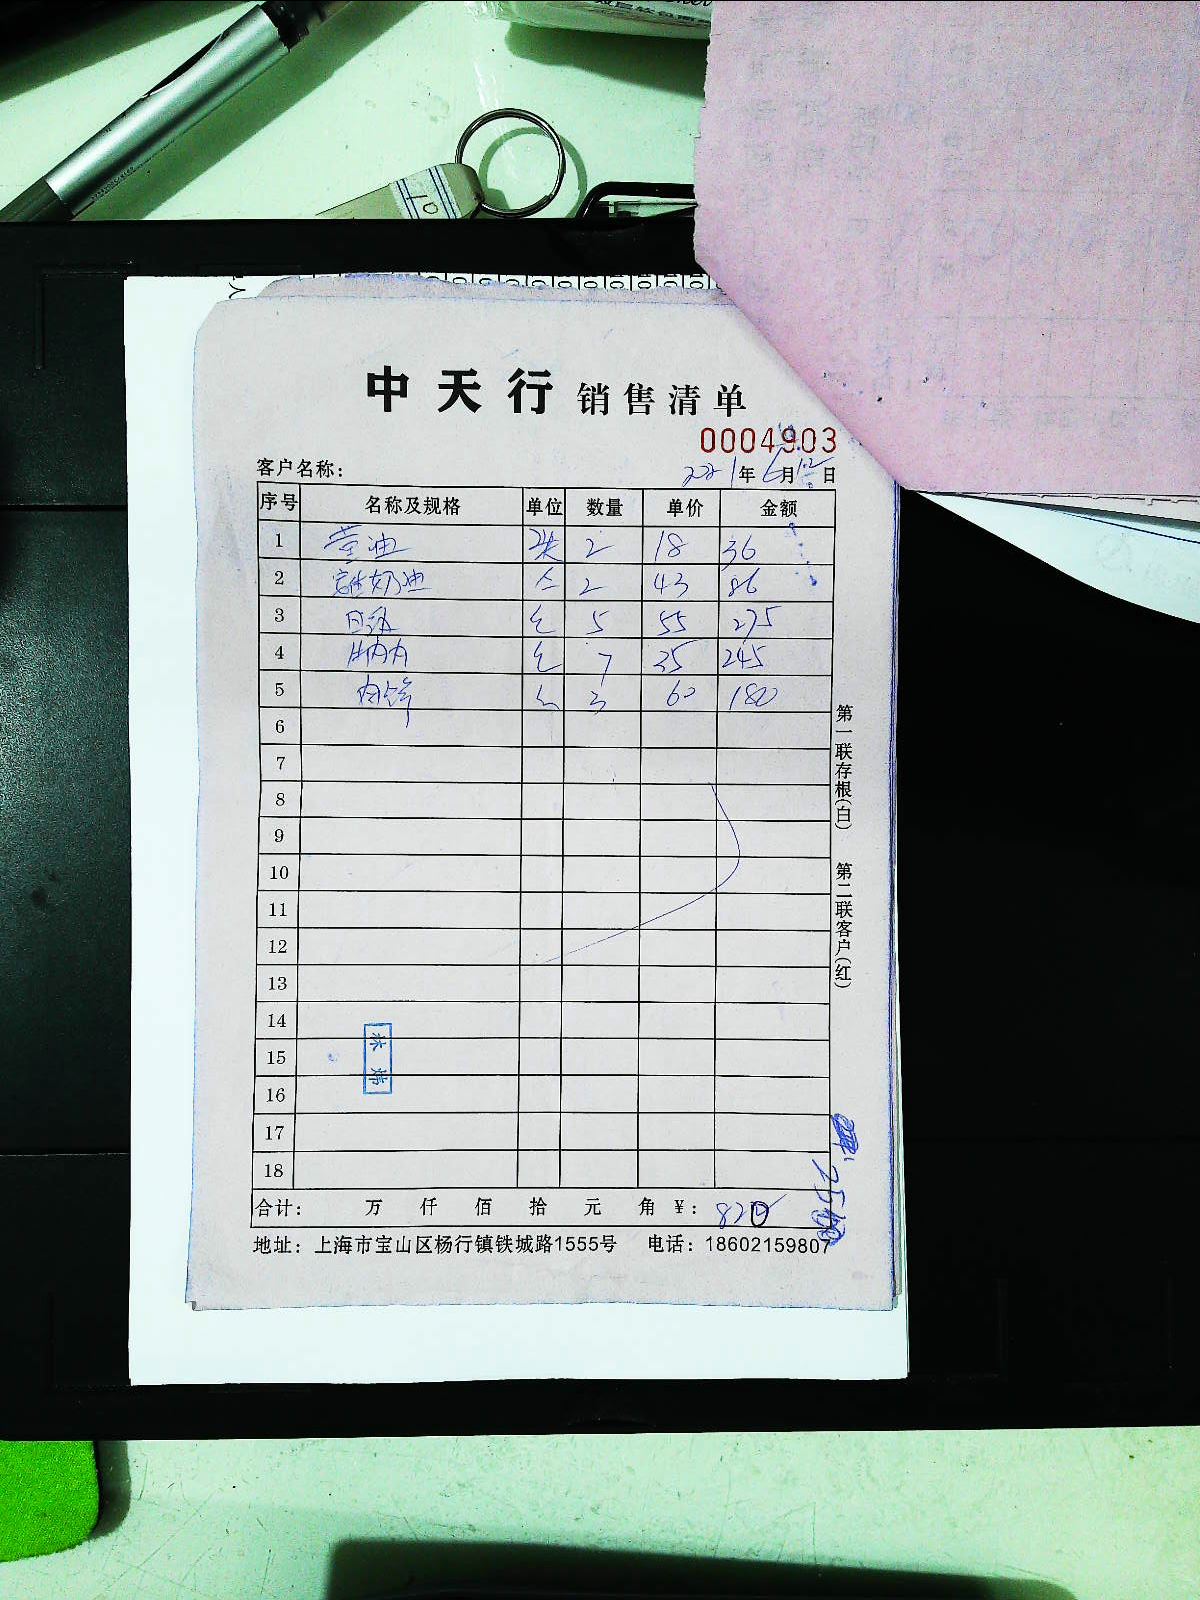 10
中天行 销售清单
0004903
客户名称: 2021年6月12日
序号 名称及规格 单位 数量 单价 金额
1 黄油 2 18 36
2 奶油 2 43 86
3 包 5 55 275
4 包 7 35 245
5 3 60 180
6
7
8
9
10
11
12
13
14
15
16
17
18
合计: 万 仟 佰 拾 元 角 ¥: 820
地址: 上海市宝山区杨行镇铁城路1555号 电话: 18602159807
第一联存根(白) 第二联客户(红)